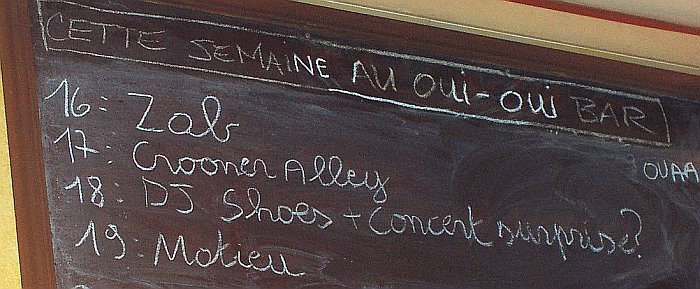 CETTE SEMAINE AU OUI-OUI BAR
16: Zab
17: Crooner Alley
OUAA
18: DJ Shoes + Concert surprise?
19: Motieu